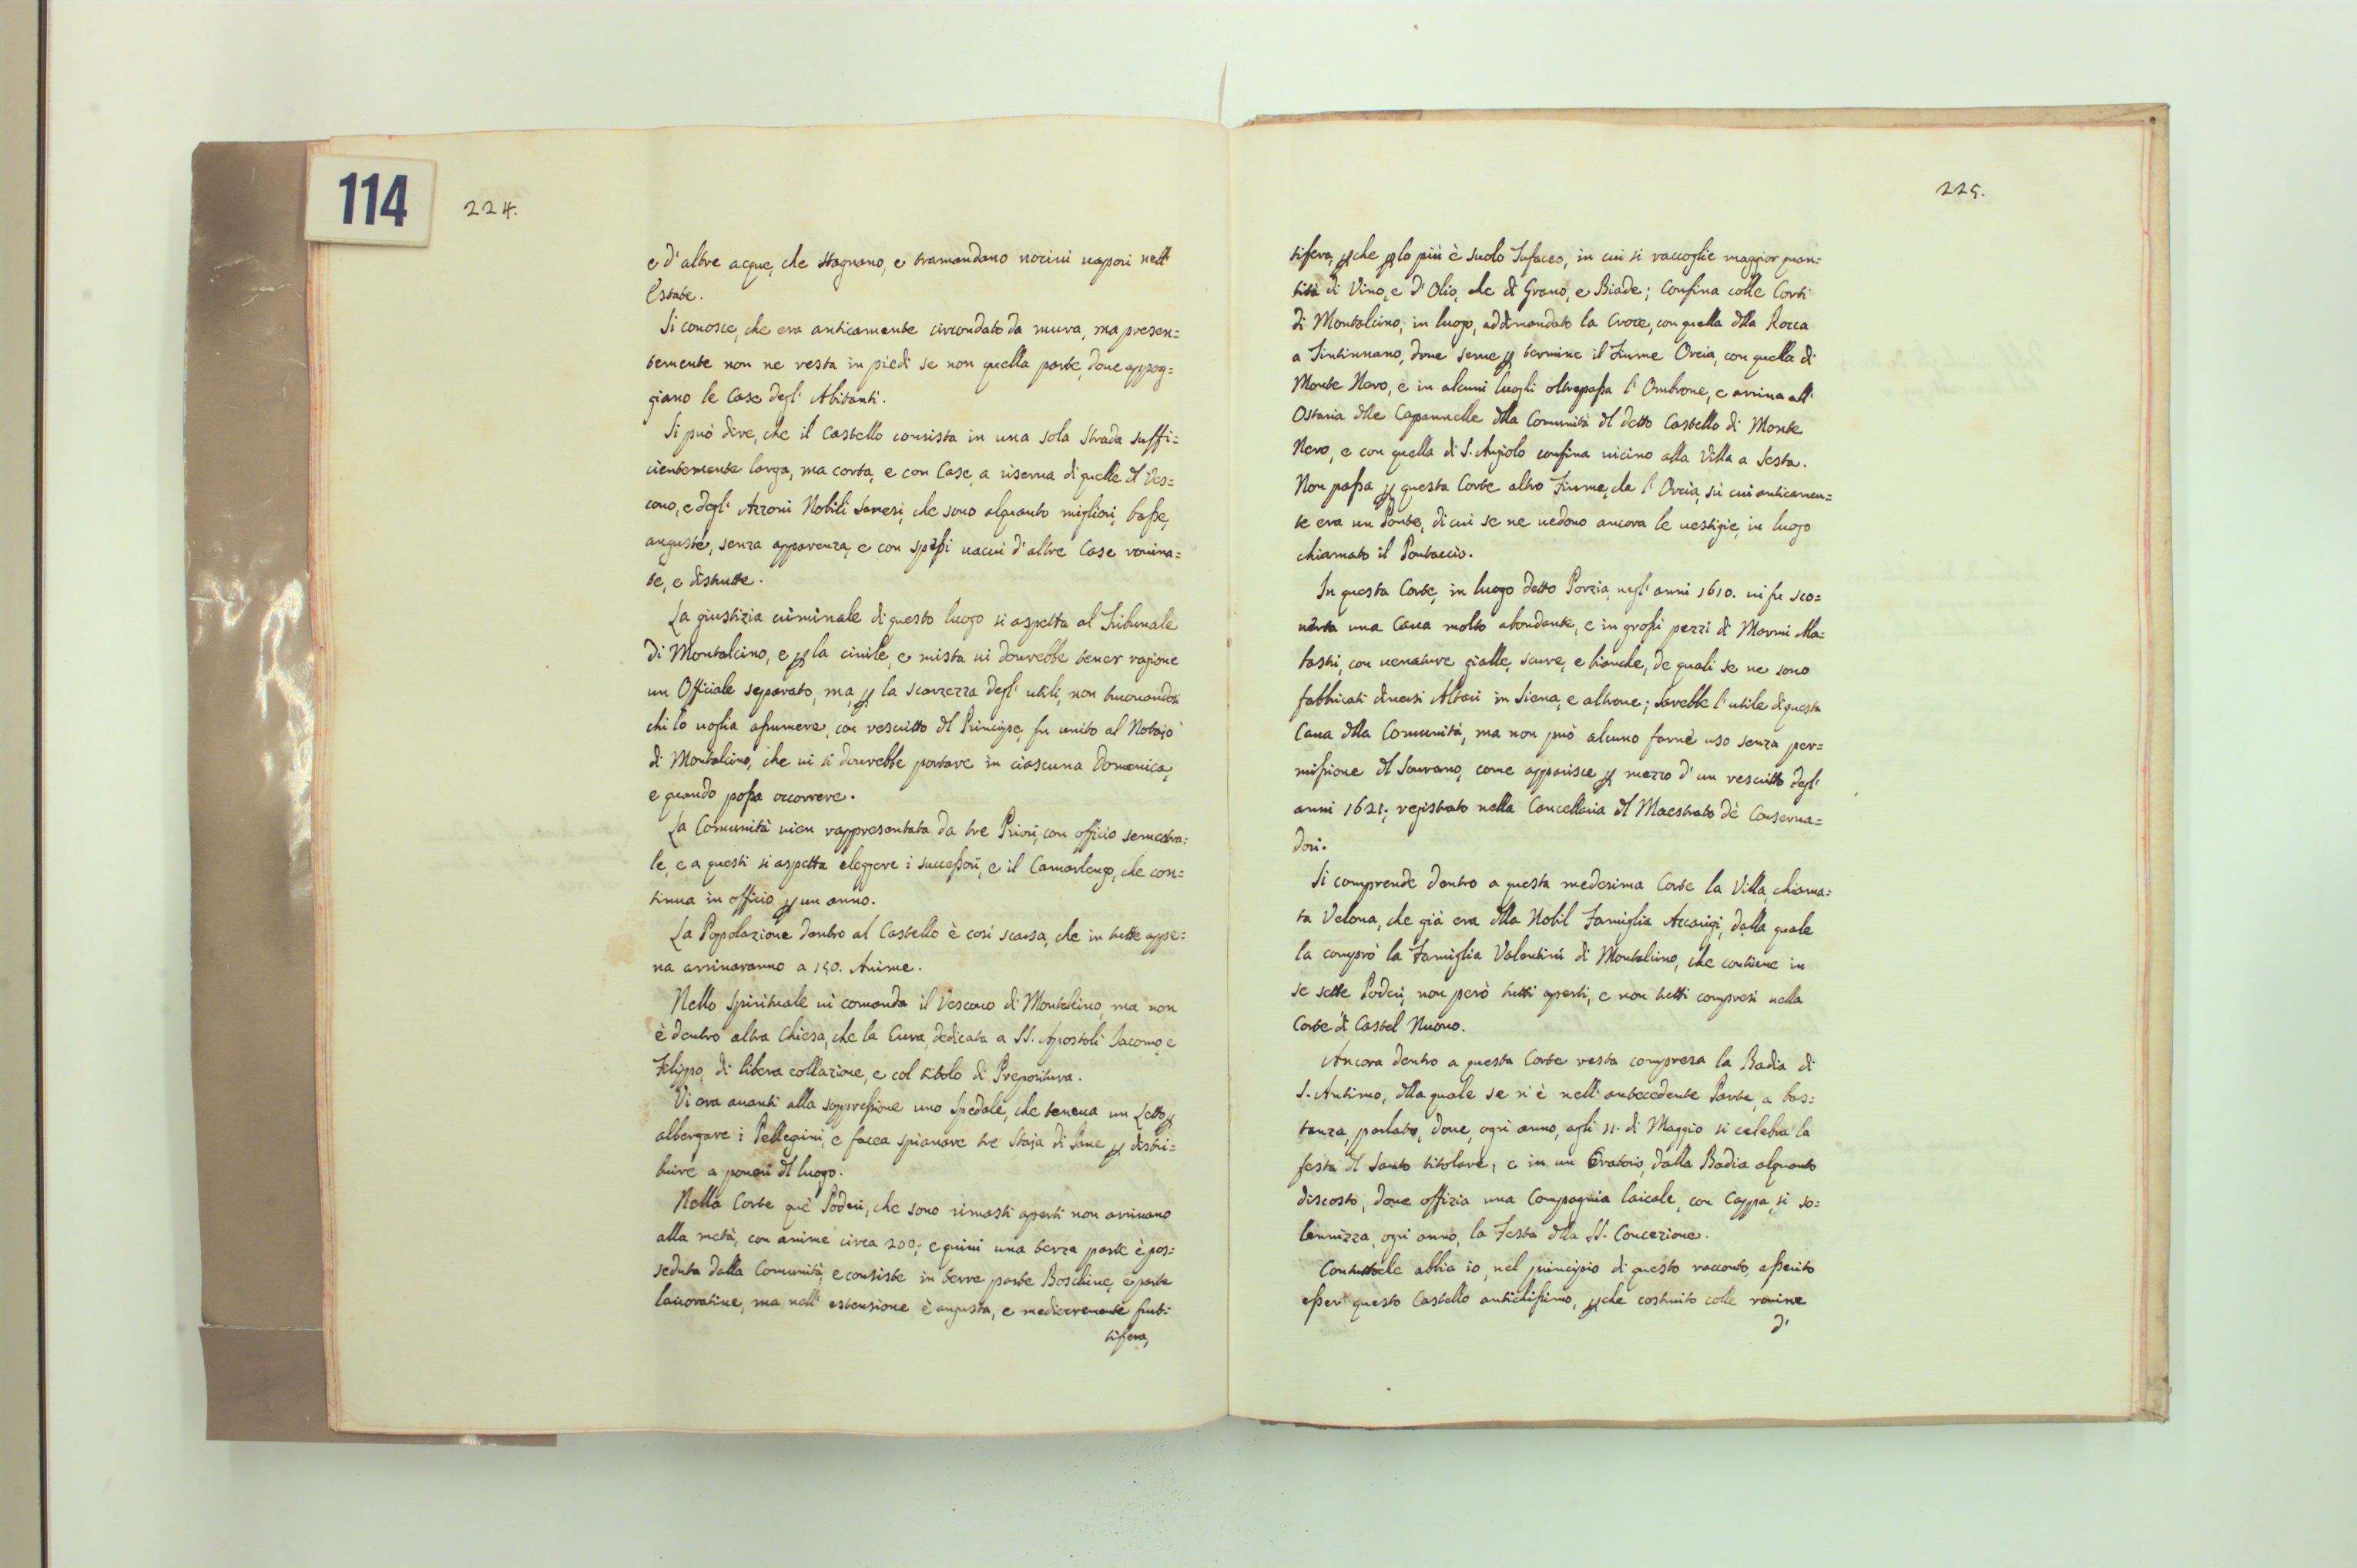 114
224.
e d'altre acque, che stagnano, e tramandano nocivi uapori nell'
Estate.
Si conosce, che era anticamente circondato da mura, ma presen=
temente non ne resta in piedi se non quella parte, doue appog=
giano le Case degl' Abitanti.
Si può dire, che il Castello consista in una sola Strada suffi=
cientemente larga, ma corta, e con Case, a riserua di quelle del Ves=
couo, e degl' Azzoni Nobili Sanesi, che sono alquanto migliori, basse,
anguste, senza apparenza, e con spessi uacui d'altre Case rouina=
te, e distrutte.
La giustizia criminale di questo luogo si aspetta al Tribunale
di Montalcino, e p la ciuile, e mista ui dourebbe tener ragione
un Officiale separato, ma, p la scarzezza degl' utili, non trouandosi
chi lo uoglia assumere, con rescritto del Principe, fu unito al Notajo
di Montalcino, che ui si dourebbe portare in ciascuna Domenica,
e quando possa occorrere.
La Comunità uien rappresentata da tre Priori, con officio semestra=
le, e a questi si aspetta eleggere i successori, e il Camarlengo, che con=
tinua in officio p un anno.
La Popolazione dentro al Castello è così scarsa, che in tutte appe=
na arriuaranno a 150. Anime.
Nello Spirituale ui comanda il Vescouo di Montalcino, ma non
è dentro altra Chiesa, che la Cura, dedicata a SS. Apostoli Iacomo, e
Felippo, di libera collazione, e col titolo di Prepositura.
Vi era auanti alla soppressione uno Spedale, che teneua un Letto p
albergare i Pellegrini, e facea spianare tre Staja di Pane p distri=
buire a poueri del luogo.
Nella Corte que' Poderi, che sono rimasti aperti non arriuano
alla metà, con anime circa 200; e quiui una terza parte è pos=
seduta dalla Comunità, e consiste in terre parte Boschiue, e parte
lauoratiue, ma nell' estensione è angusta, e mediocremente frut=
tifera,
225.
tifera, pche p lo più è suolo Tufaceo, in cui si raccoglie maggior quan=
tità di Vino, e d'Olio, che di Grano, e Biade; Confina colle Corti
di Montalcino, in luogo, addimandato la Croce, con quella della Rocca
a Tintinnano, doue serue p termine il Fiume Orcia, con quella di
Monte Nero, e in alcuni luoghi oltrepassa l'Ombrone, e arriua all'
Ostaria delle Capannelle della Comunità del detto Castello di Monte
Nero, e con quella di S. Angiolo confina uicino alla Villa a Sesta.
Non passa p questa Corte altro Fiume, che l'Orcia, sù cui anticamen=
te era un Ponte, di cui se ne uedono ancora le uestigie, in luogo
chiamato il Pontaccio.
In questa Corte, in luogo detto Porzia, negl' anni 1610. ui fu sco=
uerta una Caua molto abondante, e in grossi pezzi di Marmi Ala=
bastri, con uenature gialle, scure, e bianche, de quali se ne sono
fabbricati diuersi Altari in Siena, e altroue; Sarebbe l'utile di questa
Caua della Comunità, ma non può alcuno farne uso senza per=
missione del Sourano, come apparisce p mezzo d'un rescritto degl'
anni 1621; registrato nella Cancelleria del Maestrato dè Conserua=
dori.
Si comprende dentro a questa medesima Corte la Villa, chiama=
ta Velona, che già era della Nobil Famiglia Accarigi, dalla quale
la comprò la Famiglia Valentini di Montalcino, che contiene in
se sette Poderi, non però tutti aperti, e non tutti compresi nella
Corte di Castel Nuouo.
Ancora dentro a questa Corte resta compresa la Badia di
S. Antimo, della quale se n'è nell' antecedente Parte, a bas=
tanza, parlato, doue, ogni anno, agli 11. di Maggio si celebra la
festa del Santo titolare, e in un Oratorio, dalla Badia alquanto
discosto, doue offizia una Compagnia laicale, con Cappa, si so=
lennizza, ogni anno, la Festa della SS. Concezione.
Contuttoche abbia io, nel principio di questo racconto, asserito
esser questo Castello antichissimo, pche costruito colle rouine
d'